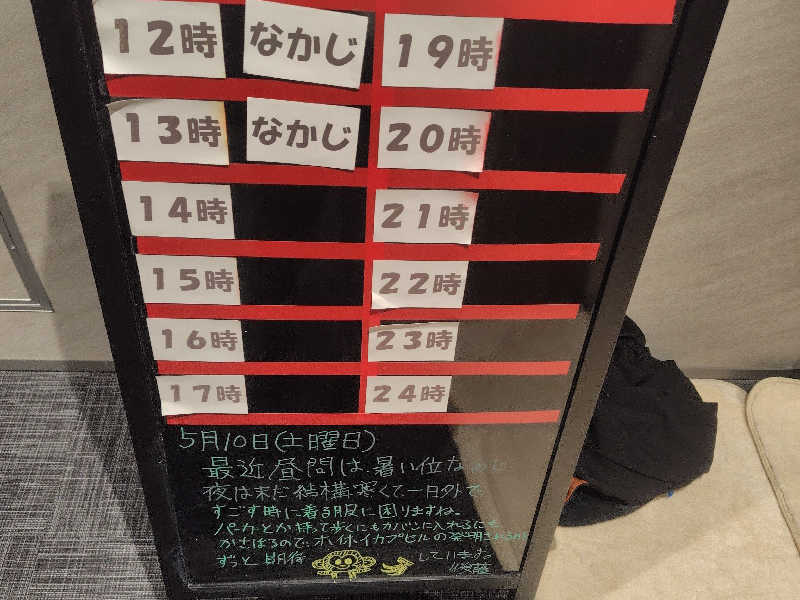 12時 なかじ 19時
13時 なかじ 20時
14時 21時
15時 22時
16時 23時
17時 24時
5月10日(土曜日)
最近昼間は、暑い位なのに
夜は未だ結構寒くて一日外で
すごす時に着る服に困りますね。
パーカとか持って歩くにもカバンに入れるにも
かさばるので、ホイホイカプセルの発明されるのを
ずっと期待しています。
後藤